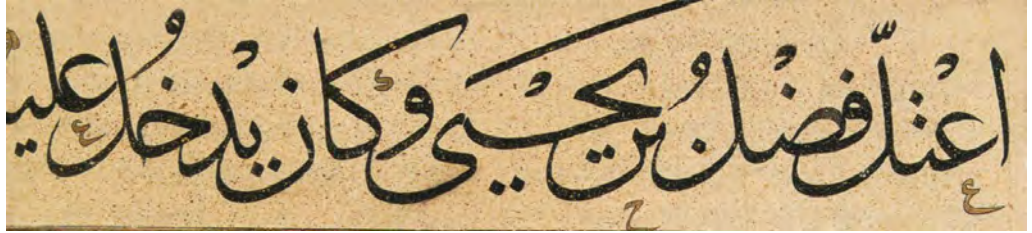 اعْتلّ فضْلُ بنُ يحْيى وكان يدْخُلُ عليه